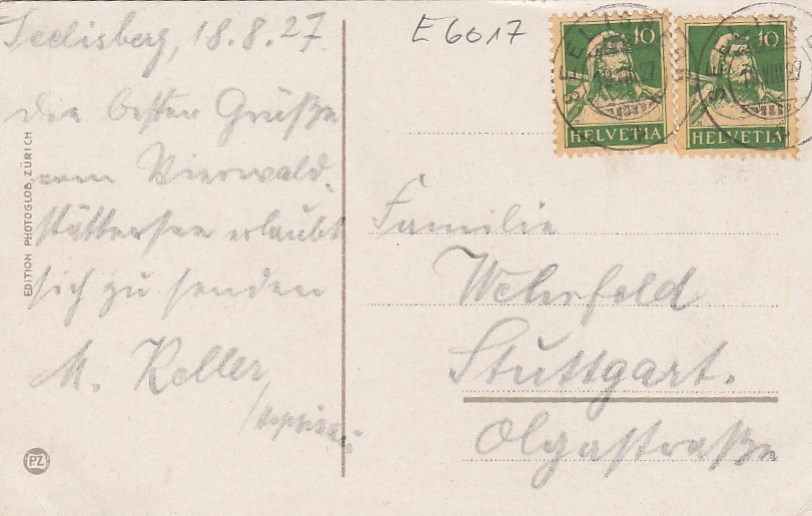 Seelisberg, 18.8.27.
Die besten Grüße
vom Vierwald-
stättersee erlaubt
sich zu senden
M. Keller
E6017
10
HELVETIA
10
HELVETIA
SEELISBERG
Familie
Wehrfeld
Stuttgart.
Olgastraße
EDITION PHOTOGLOB, ZÜRICH
PZ